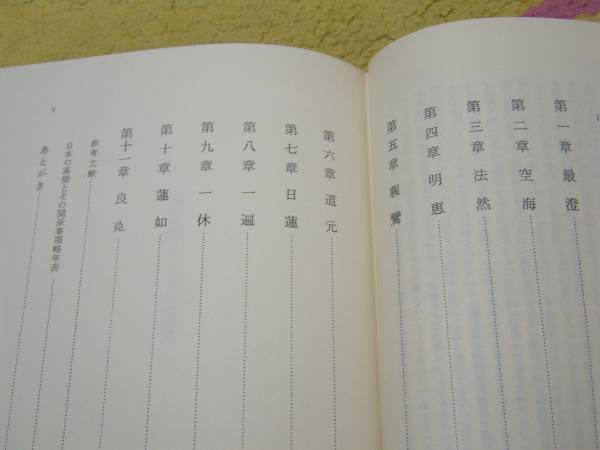 第一章 最澄
第二章 空海
第三章 法然
第四章 明恵
第五章 親鸞
第六章 道元
第七章 日蓮
第八章 一遍
第九章 一休
第十章 蓮如
第十一章 良寛
参考文献
日本の高僧とその関係事項略年表
あとがき
5